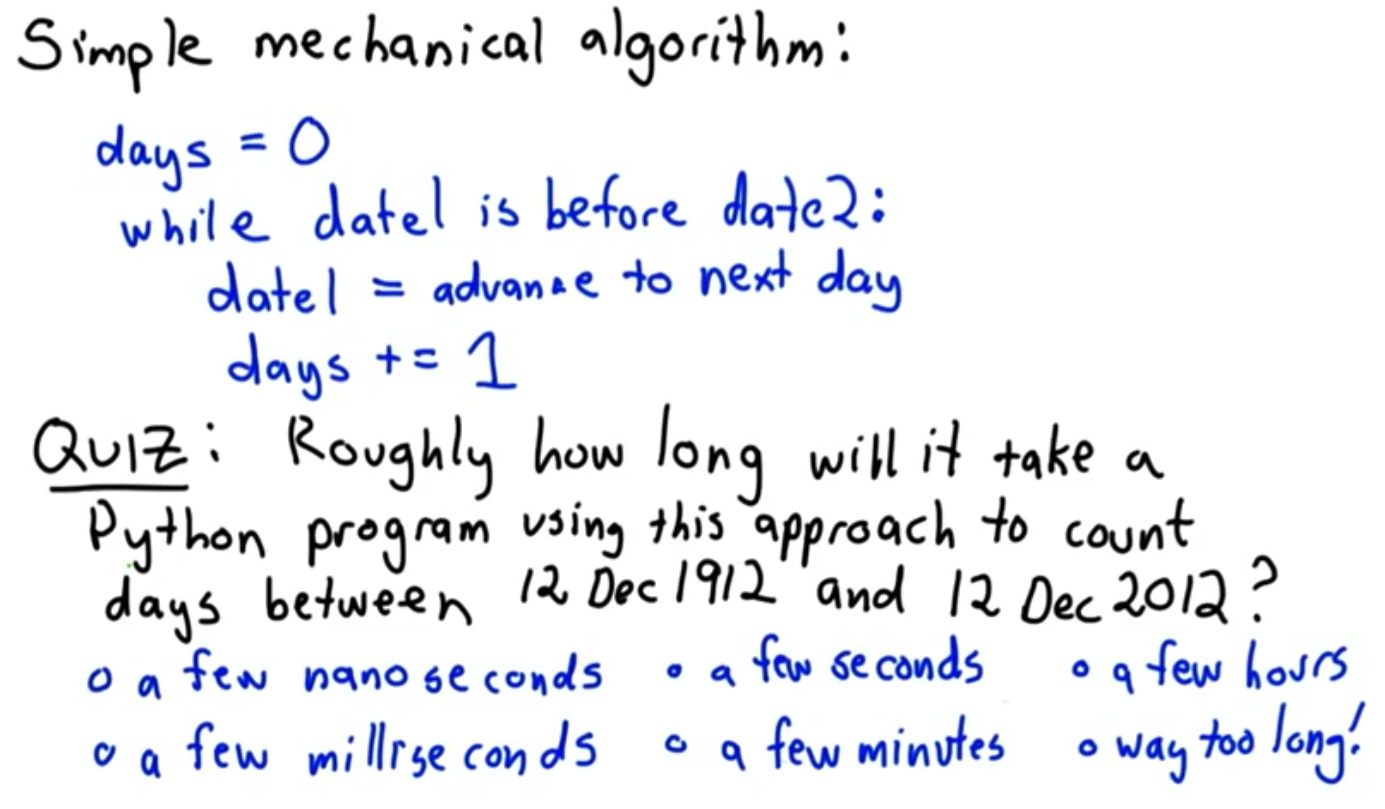 Simple mechanical algorithm:
days = 0
while date1 is before date2:
date1 = advance to next day
days += 1
QUIZ: Roughly how long will it take a
Python program using this approach to count
days between 12 Dec 1912 and 12 Dec 2012?
o a few nanoseconds o a few seconds o a few hours
o a few milliseconds o a few minutes o way too long!